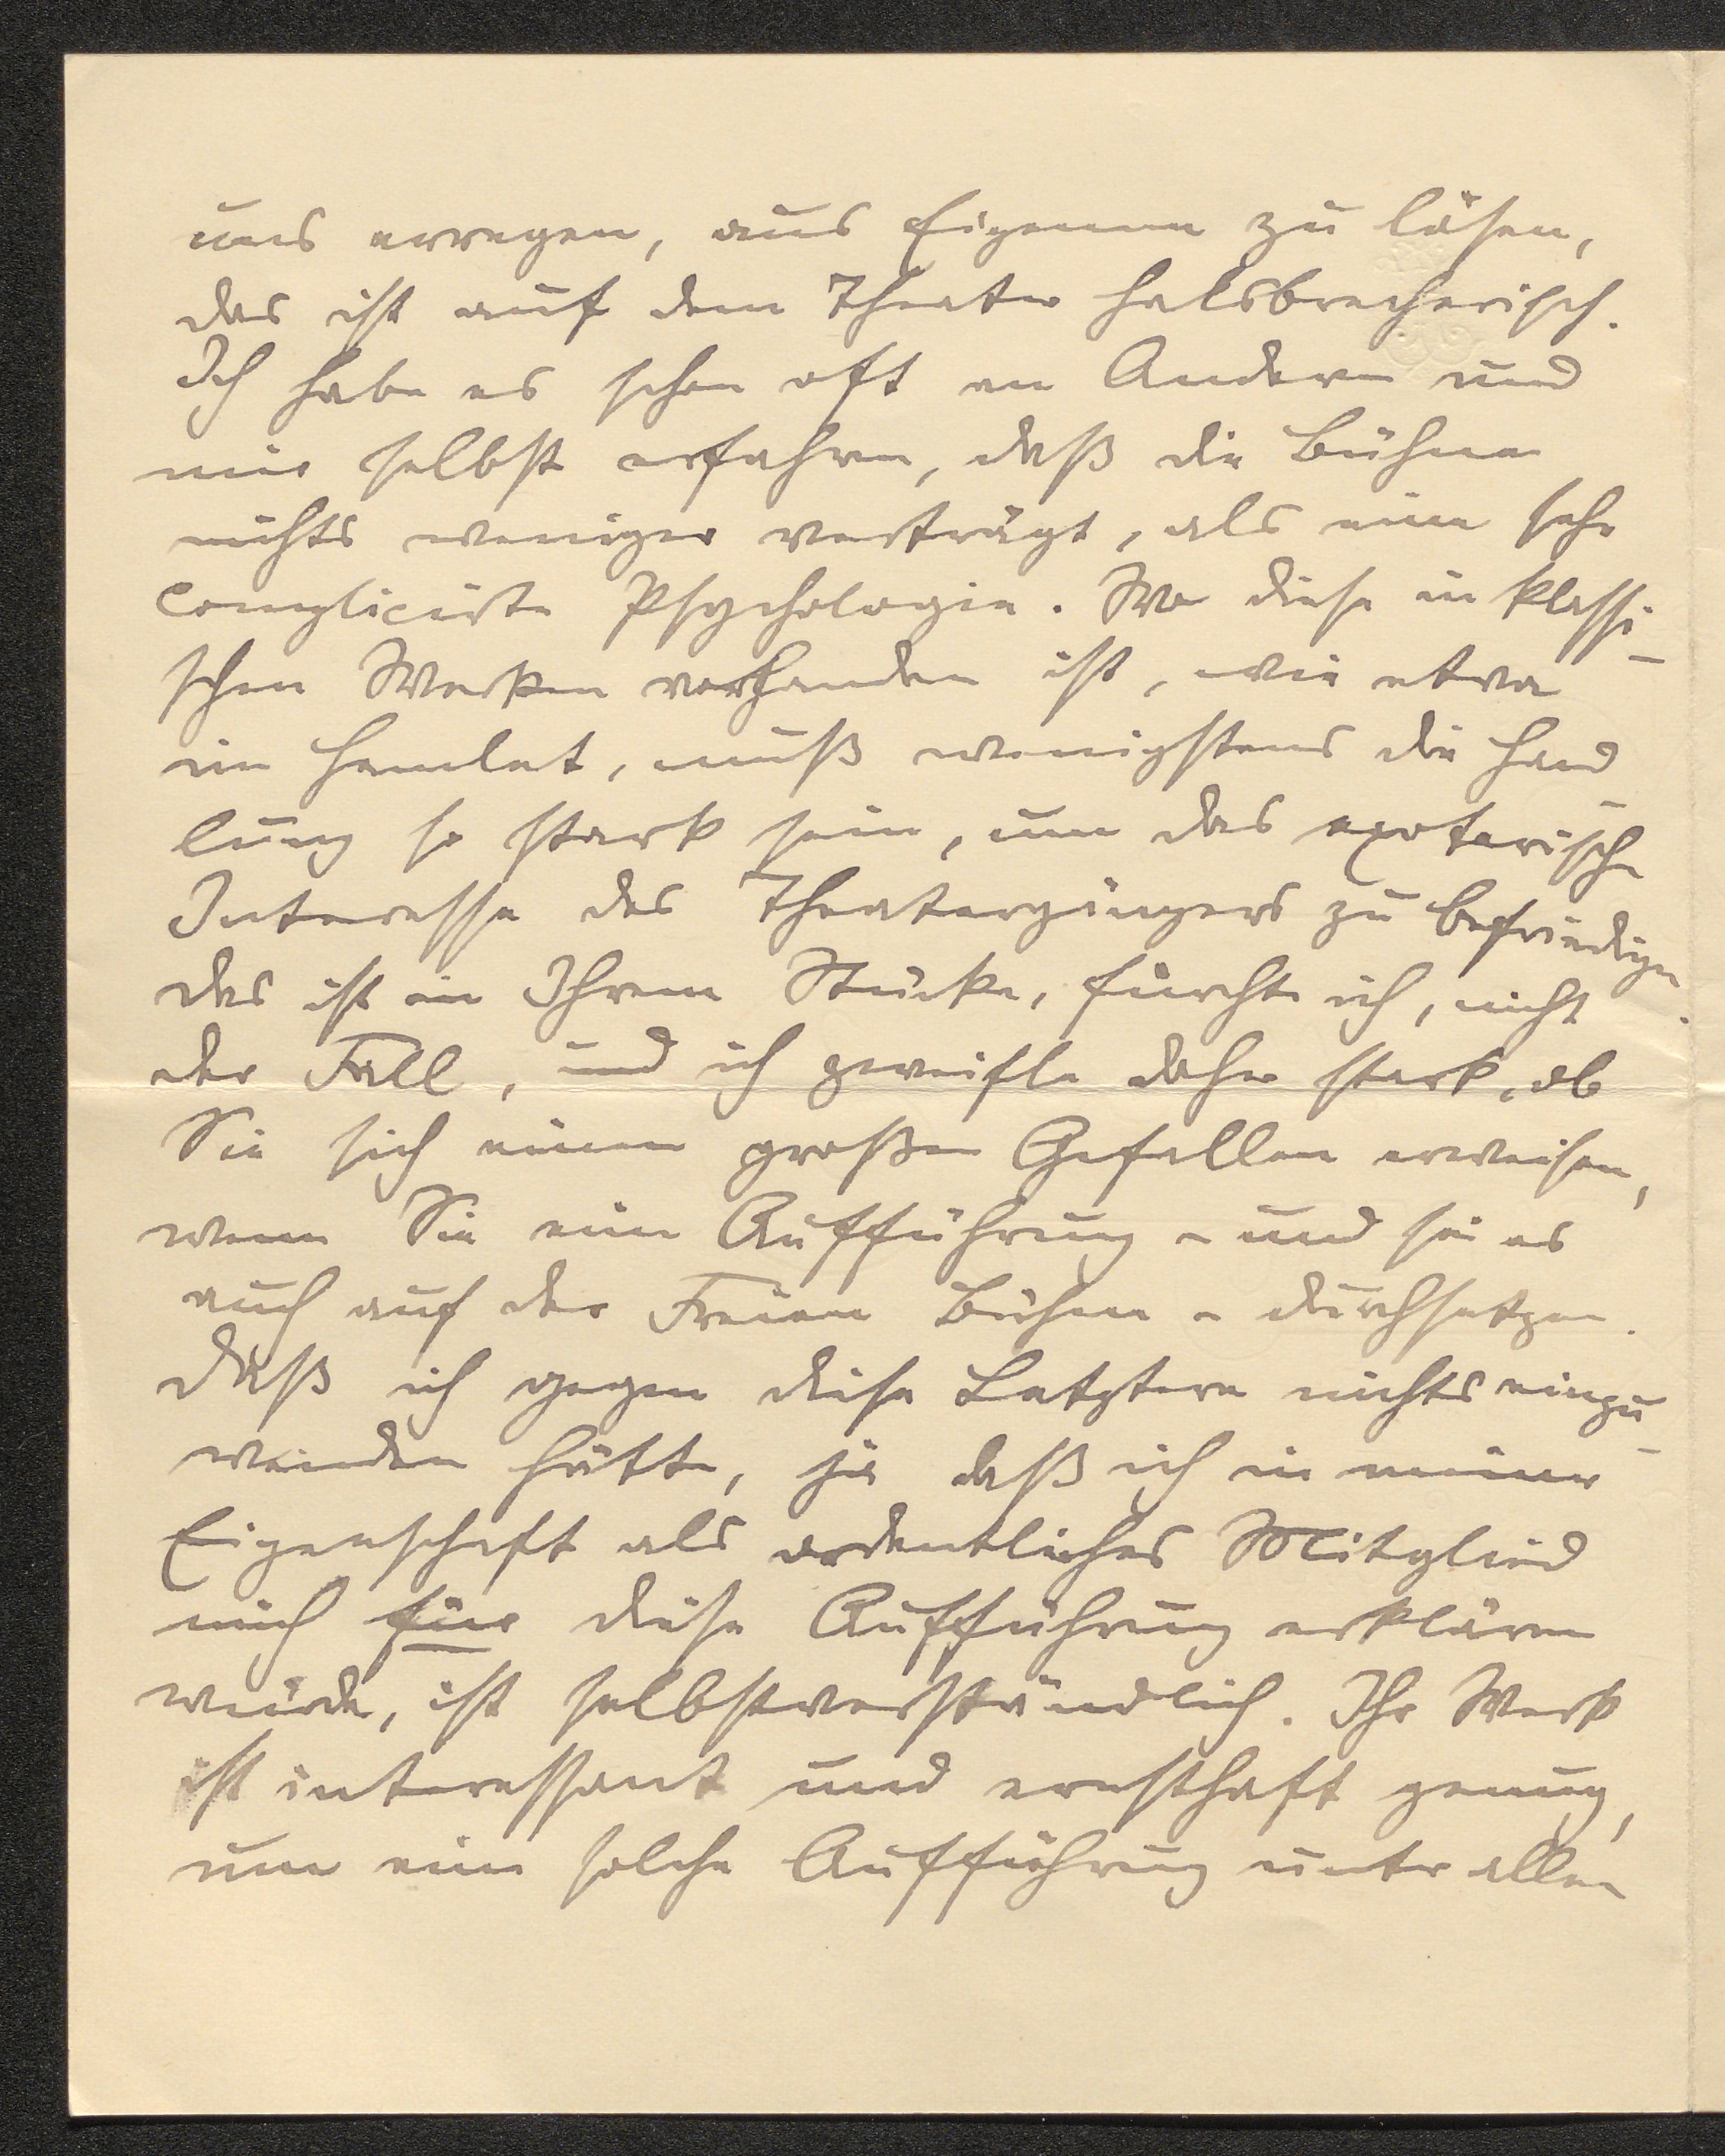 uns erregen, aus Eigenem zu lösen,
das ist auf dem Theater halsbrecherisch.
Ich habe es schon oft an Andern und
mir selbst erfahren, daß die Bühne
nichts weniger verträgt, als eine sehr
complicirte Psychologie. Wo diese in klassi-
schen Werken vorhanden ist, wie etwa
im Hamlet, muß wenigstens die Hand-
lung so stark sein, um das exoterische
Interesse des Theatergängers zu befriedigen.
das ist in Ihrem Stücke, fürchte ich, nicht
der Fall, und ich zweifle daher stark, ob
Sie sich einen großen Gefallen erweisen,
wenn Sie eine Aufführung – und sei es
auch auf der Freien Bühne – durchsetzen.
daß ich gegen diese Letztere nichts einzu-
wenden hätte, ja daß ich in meiner
Eigenschaft als ordentliches Mitglied
mich für diese Aufführung erklären
würde, ist selbstverständlich. Ihr Werk
ist interessant und ernsthaft genug,
um eine solche Aufführung unter allen